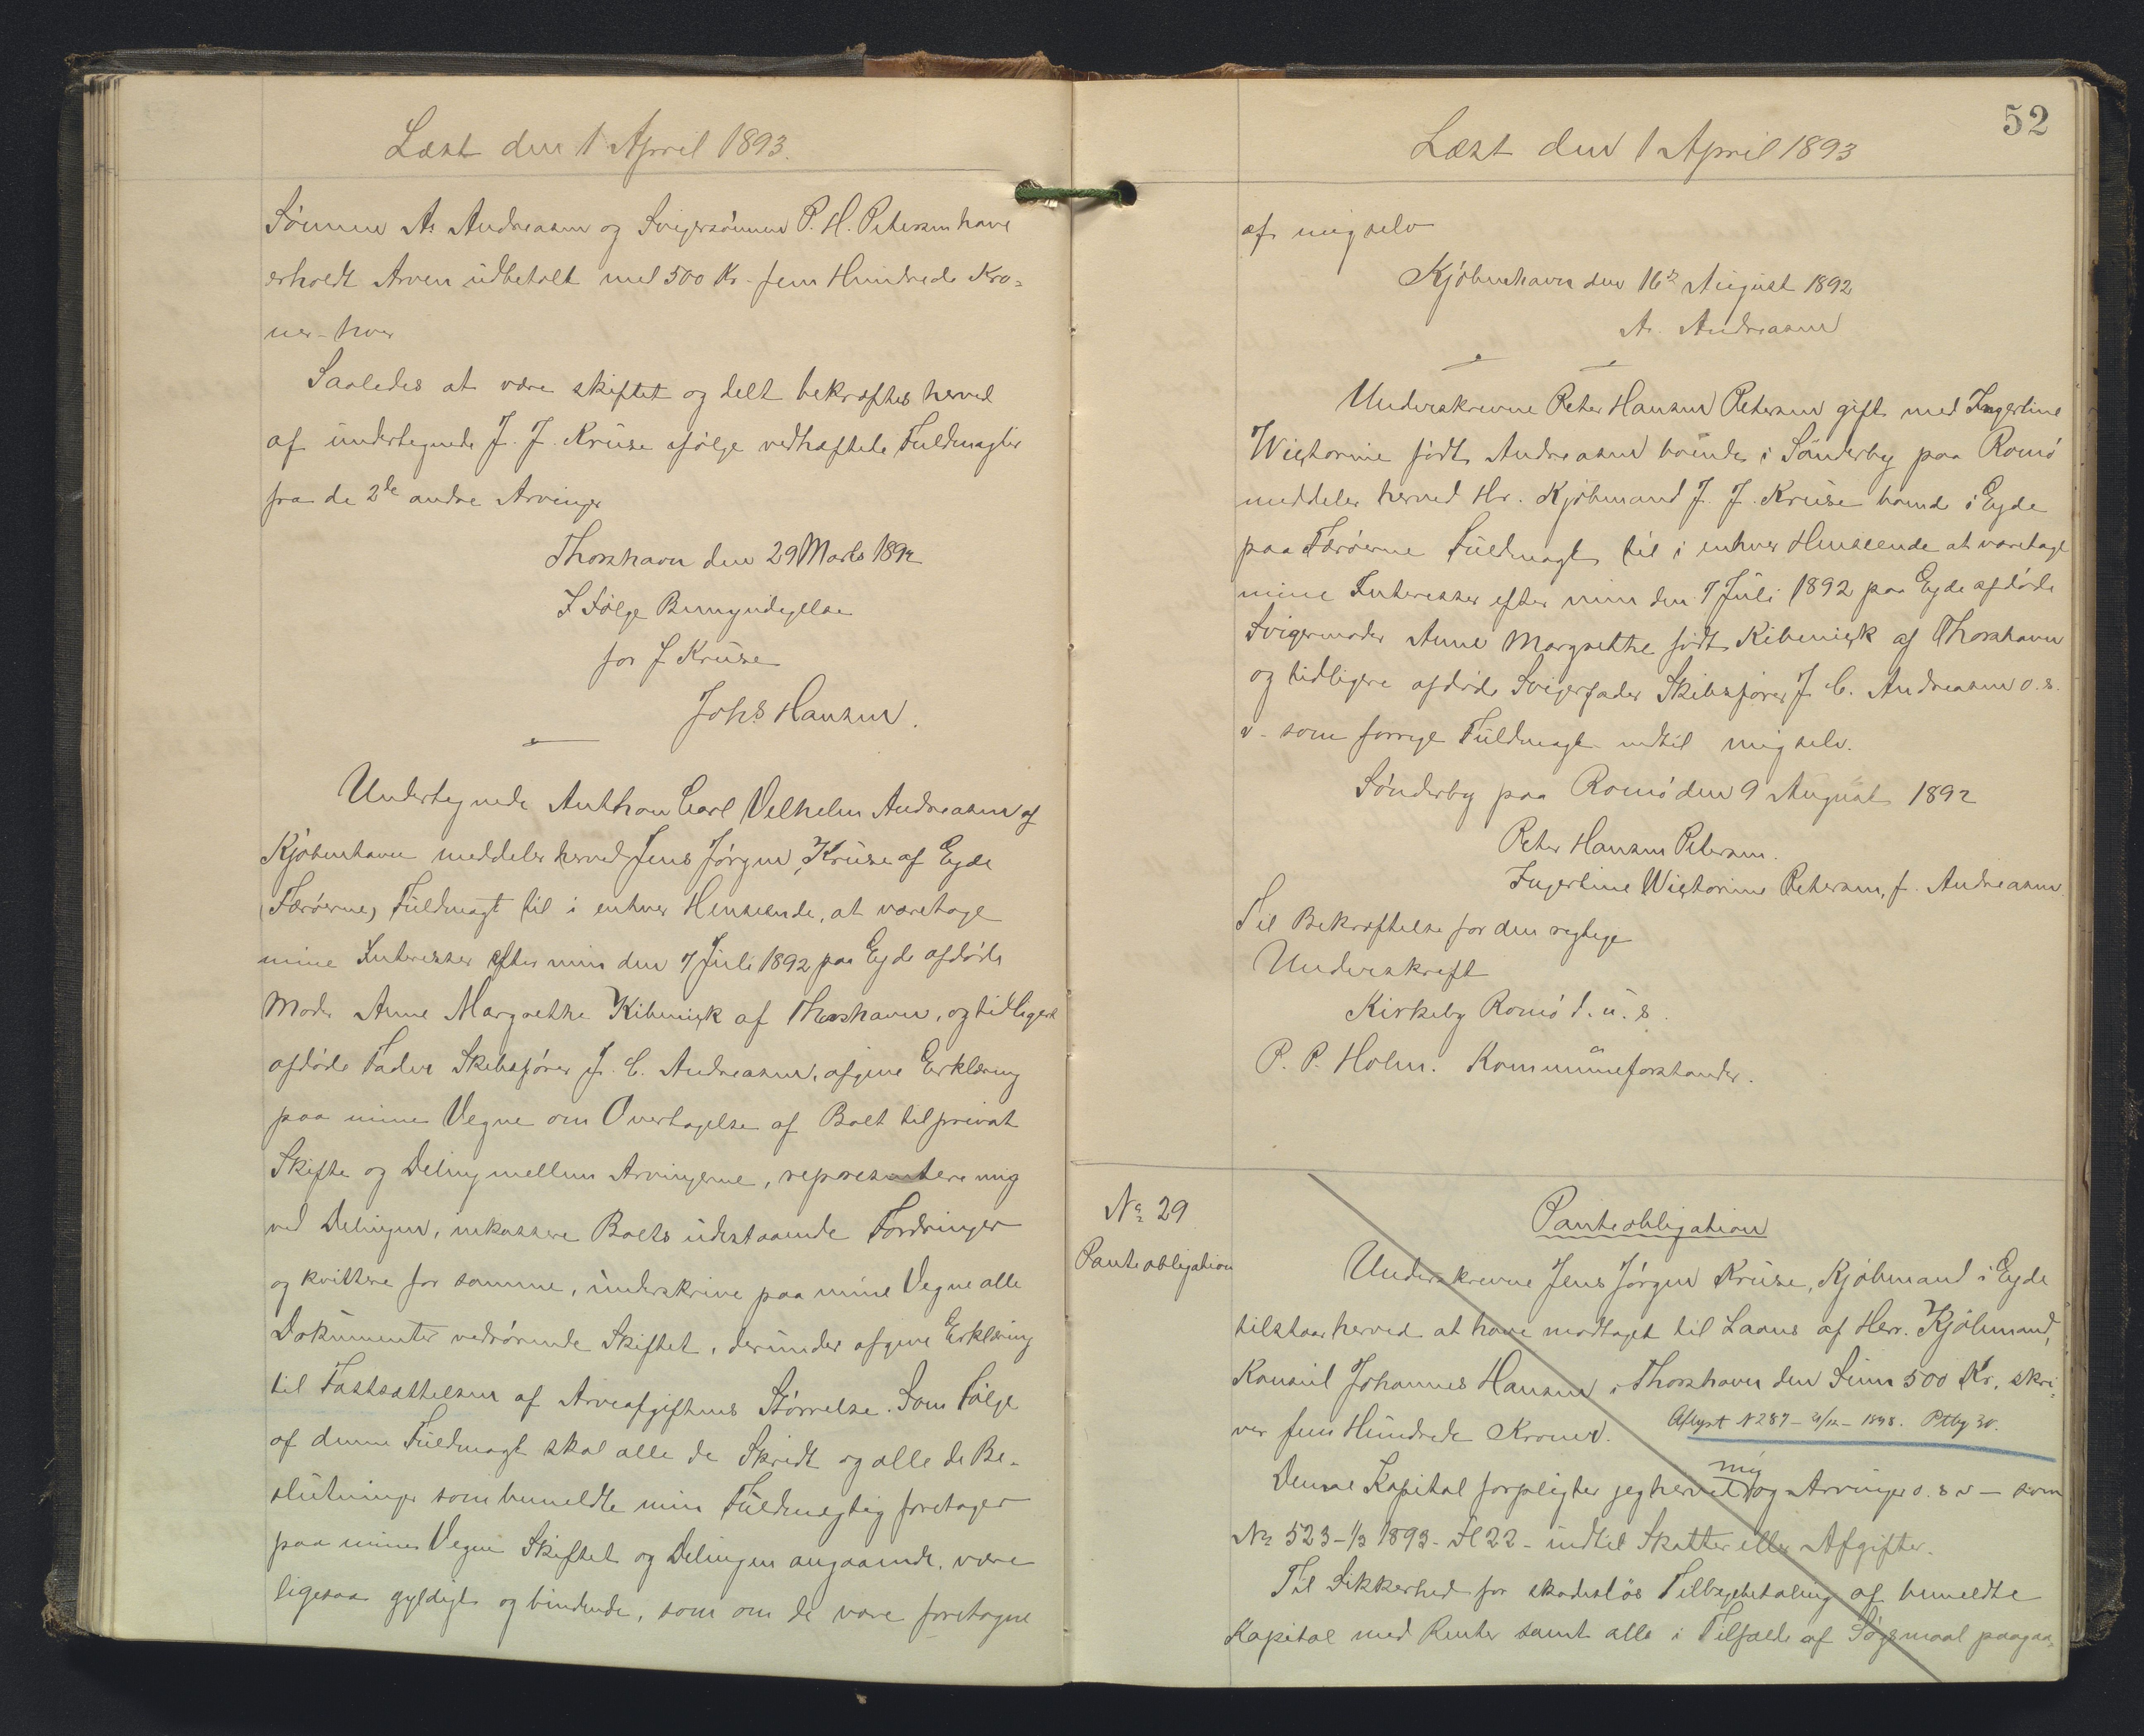 Læst den 1 April 1893.
Sønnen A. Andreasen og Svigersønnen P. H. Petersen have
erholdt Arven udbetalt med 500 Kr. fem Hundrede Kro-
ner - hver
Saaledes at være skiftet og delt bekræftes herved
af undertegnede J. J. Kruse ifølge vedhæftede Fuldmagter
fra de 2de andre Arvinger
Thorshavn den 29 Marts 1892
I Følge Bemyndigelse
for J Kruse
Johs Hansen.
Undertegnede Anthon Carl Vilhelm Andreasen af
Kjøbenhavn meddeler herved Jens Jørgen Kruse af Eyde
(Færøerne) Fuldmagt til i enhver Henseende, at varetage
mine Interesser efter min den 7 Juli 1892 paa Eyde afdøde
Moder Anne Margrethe Kibenisk af Thorshavn, og tidligere
afdøde Fader Skibsfører J. C. Andreasen, afgive Erklæring
paa mine Vegne om Overtagelse af Boet til privat
Skifte og Deling mellem Arvingerne, repræsentere mig
ved Delingen, inkassere Boets udestaaende Fordringer
og kvittere for samme, underskrive paa mine Vegne alle
Dokumenter vedrørende Skiftet, derunder afgive Erklæring
til Fastsættelsen af Arveafgiftens Størrelse. Som Følge
af denne Fuldmagt skal alle de Skridt og alle de Be-
slutninger som bemeldte min Fuldmægtig foretager
paa mine Vegne Skiftet og Delingen angaaende, være
ligesaa gyldige og bindende, som om de vare foretagne
52
Læst den 1 April 1893
af mig selv
Kjøbenhavn den 16de August 1892
A. Andreasen
Underskrevne Peter Hansen Petersen gift med Ingertine
Wictorine født Andreasen boende i Sønderby paa Romø
meddeler herved Hr. Kjøbmand J. J. Kruse boende i Eyde
paa Færøerne Fuldmagt til i enhver Henseende at varetage
mine Interesser efter min den 7 Juli 1892 paa Eyde afdøde
Svigermoder Anne Margrethe født Kibenisk af Thorshavn
og tidligere afdøde Svigerfader Skibsfører J. C. Andreasen o. s.
v - som forrige Fuldmagt indtil mig selv.
Sønderby paa Romø den 9 August 1892
Peter Hansen Petersen.
Ingertine Wictorine Petersen, f. Andreasen
Til Bekræftelse for den rigtige
Underskrift
Kirkeby Romø d. u. s.
P. P. Holm. Kommuneforstander.
No 29
Panteobligation
Panteobligation
Underskrevne Jens Jørgen Kruse, Kjøbmand i Eyde
tilstaar herved at have modtaget til Laans af Herr. Kjøbmand,
Konsul Johannes Hansen i Thorshavn den Sum 500 Kr. skri-
ver fem Hundrede Kroner. Aflyst N 287 - 1898. Ptbg 30.
Denne Kapital forpligter jeg herved mig og Arvinger o. s. v - som
No 523 - 1/3 1893 - Fl 22 - indtil Skatter eller Afgifter.
Til Sikkerhed for skadesløs Tilbagebetaling af bemeldte
Kapital med Renter samt alle i Tilfælde af Søgsmaal paagaa-